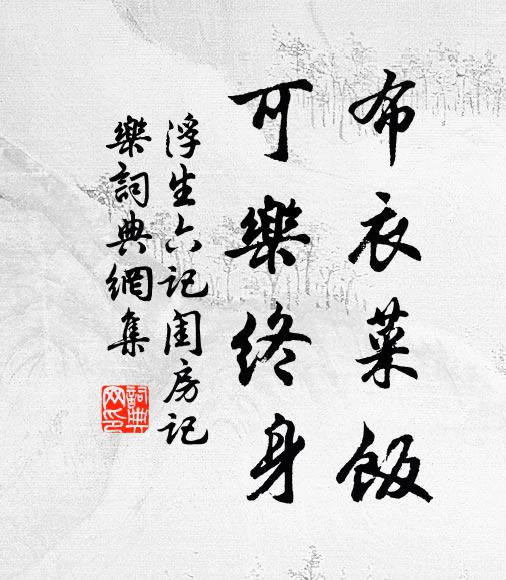 布衣菜飯
可樂終身
浮生六記閨房記
樂詞典網集
詞典
网印